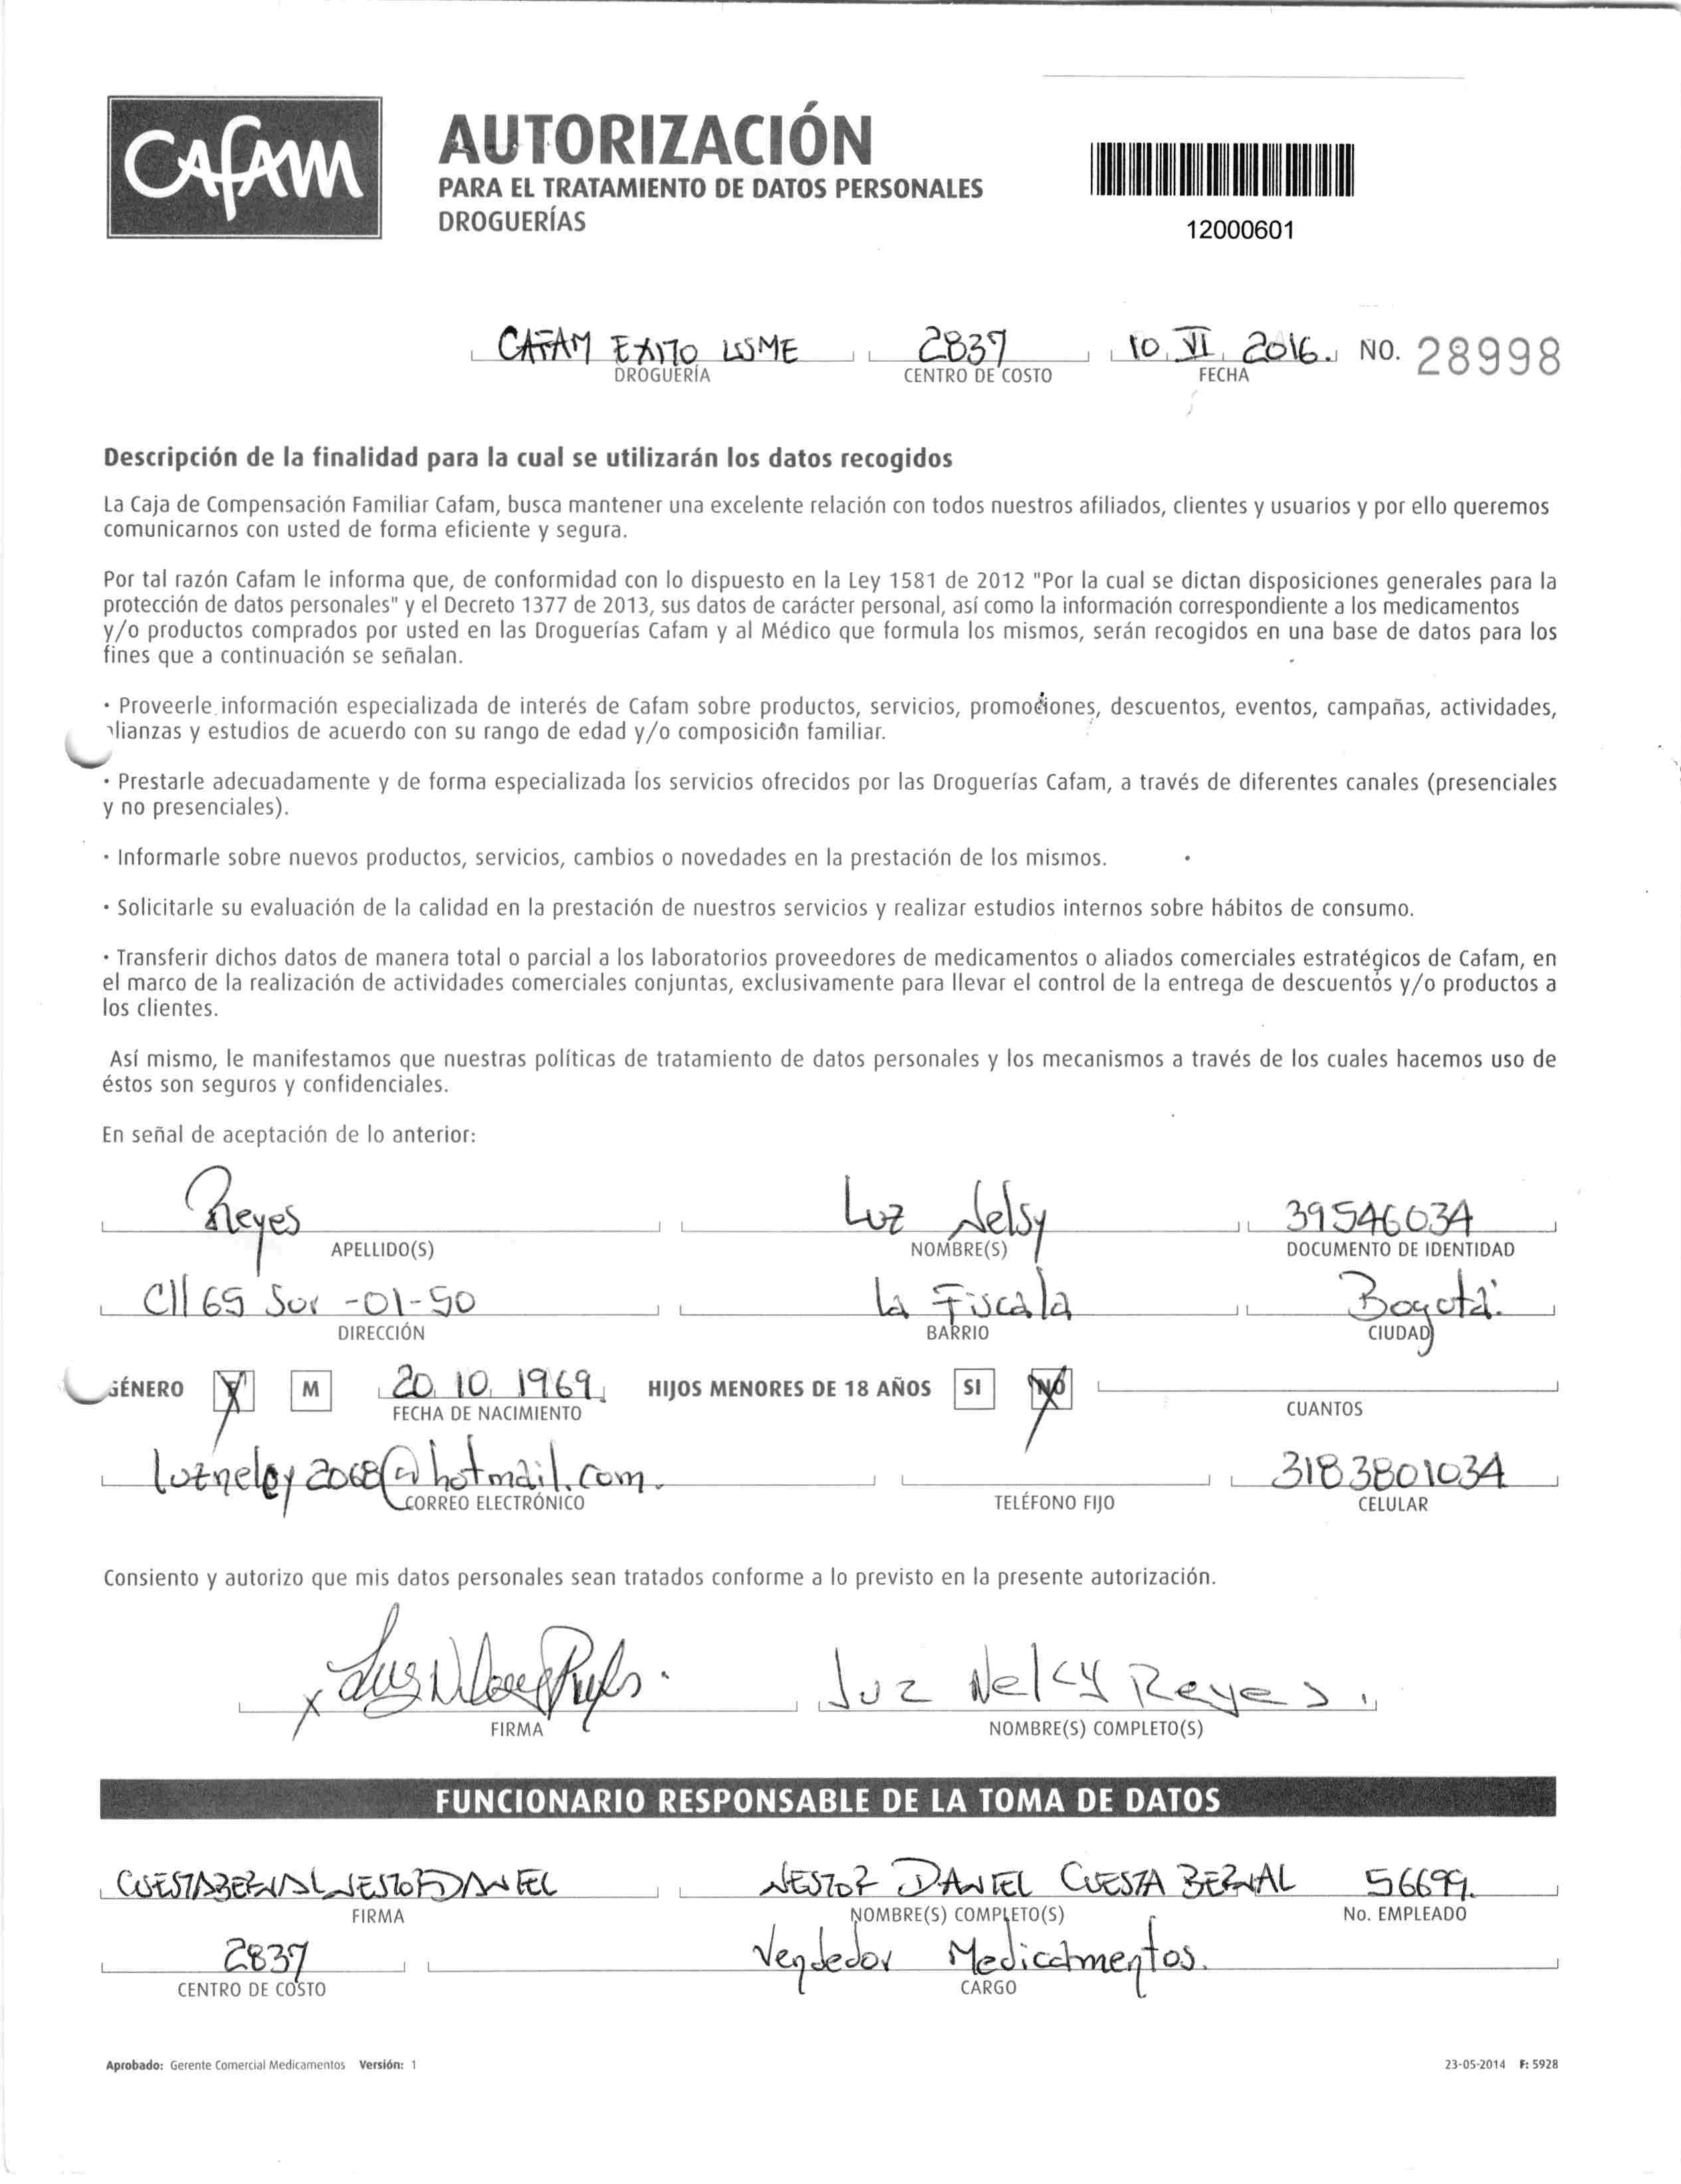 CAFAM
AUTORIZACIÓN
PARA EL TRATAMIENTO DE DATOS PERSONALES
DROGUERÍAS
12000601
CAFAM EXITO USME 2837 10 VI 2016. NO. 28998
DROGUERÍA CENTRO DE COSTO FECHA
Descripción de la finalidad para la cual se utilizarán los datos recogidos
La Caja de Compensación Familiar Cafam, busca mantener una excelente relación con todos nuestros afiliados, clientes y usuarios y por ello queremos
comunicarnos con usted de forma eficiente y segura.
Por tal razón Cafam le informa que, de conformidad con lo dispuesto en la Ley 1581 de 2012 "Por la cual se dictan disposiciones generales para la
protección de datos personales" y el Decreto 1377 de 2013, sus datos de carácter personal, así como la información correspondiente a los medicamentos
y/o productos comprados por usted en las Droguerías Cafam y al Médico que formula los mismos, serán recogidos en una base de datos para los
fines que a continuación se señalan.
· Proveerle información especializada de interés de Cafam sobre productos, servicios, promociones, descuentos, eventos, campañas, actividades,
alianzas y estudios de acuerdo con su rango de edad y/o composición familiar.
· Prestarle adecuadamente y de forma especializada los servicios ofrecidos por las Droguerías Cafam, a través de diferentes canales (presenciales
y no presenciales).
· Informarle sobre nuevos productos, servicios, cambios o novedades en la prestación de los mismos.
· Solicitarle su evaluación de la calidad en la prestación de nuestros servicios y realizar estudios internos sobre hábitos de consumo.
· Transferir dichos datos de manera total o parcial a los laboratorios proveedores de medicamentos o aliados comerciales estratégicos de Cafam, en
el marco de la realización de actividades comerciales conjuntas, exclusivamente para llevar el control de la entrega de descuentos y/o productos a
los clientes.
Así mismo, le manifestamos que nuestras políticas de tratamiento de datos personales y los mecanismos a través de los cuales hacemos uso de
éstos son seguros y confidenciales.
En señal de aceptación de lo anterior:
Reyes Luz Nelsy 39546034
APELLIDO(S) NOMBRE(S) DOCUMENTO DE IDENTIDAD
Cll 65 Sur -01-50 La Fiscala Bogotá.
DIRECCIÓN BARRIO CIUDAD
GÉNERO F M 20 10 1969 HIJOS MENORES DE 18 AÑOS SI NO
FECHA DE NACIMIENTO CUANTOS
2068@hotmail.com. 3183801034
CORREO ELECTRÓNICO TELÉFONO FIJO CELULAR
Consiento y autorizo que mis datos personales sean tratados conforme a lo previsto en la presente autorización.
X Luz Nelcy Reyes.
FIRMA NOMBRE(S) COMPLETO(S)
FUNCIONARIO RESPONSABLE DE LA TOMA DE DATOS
CUESTA BERNAL NESTOR DANIEL NESTOR DANIEL CUESTA BERNAL 56699.
FIRMA NOMBRE(S) COMPLETO(S) No. EMPLEADO
2837 Vendedor Medicamentos.
CENTRO DE COSTO CARGO
Aprobado: Gerente Comercial Medicamentos Versión: 1 23-05-2014 F: 5928